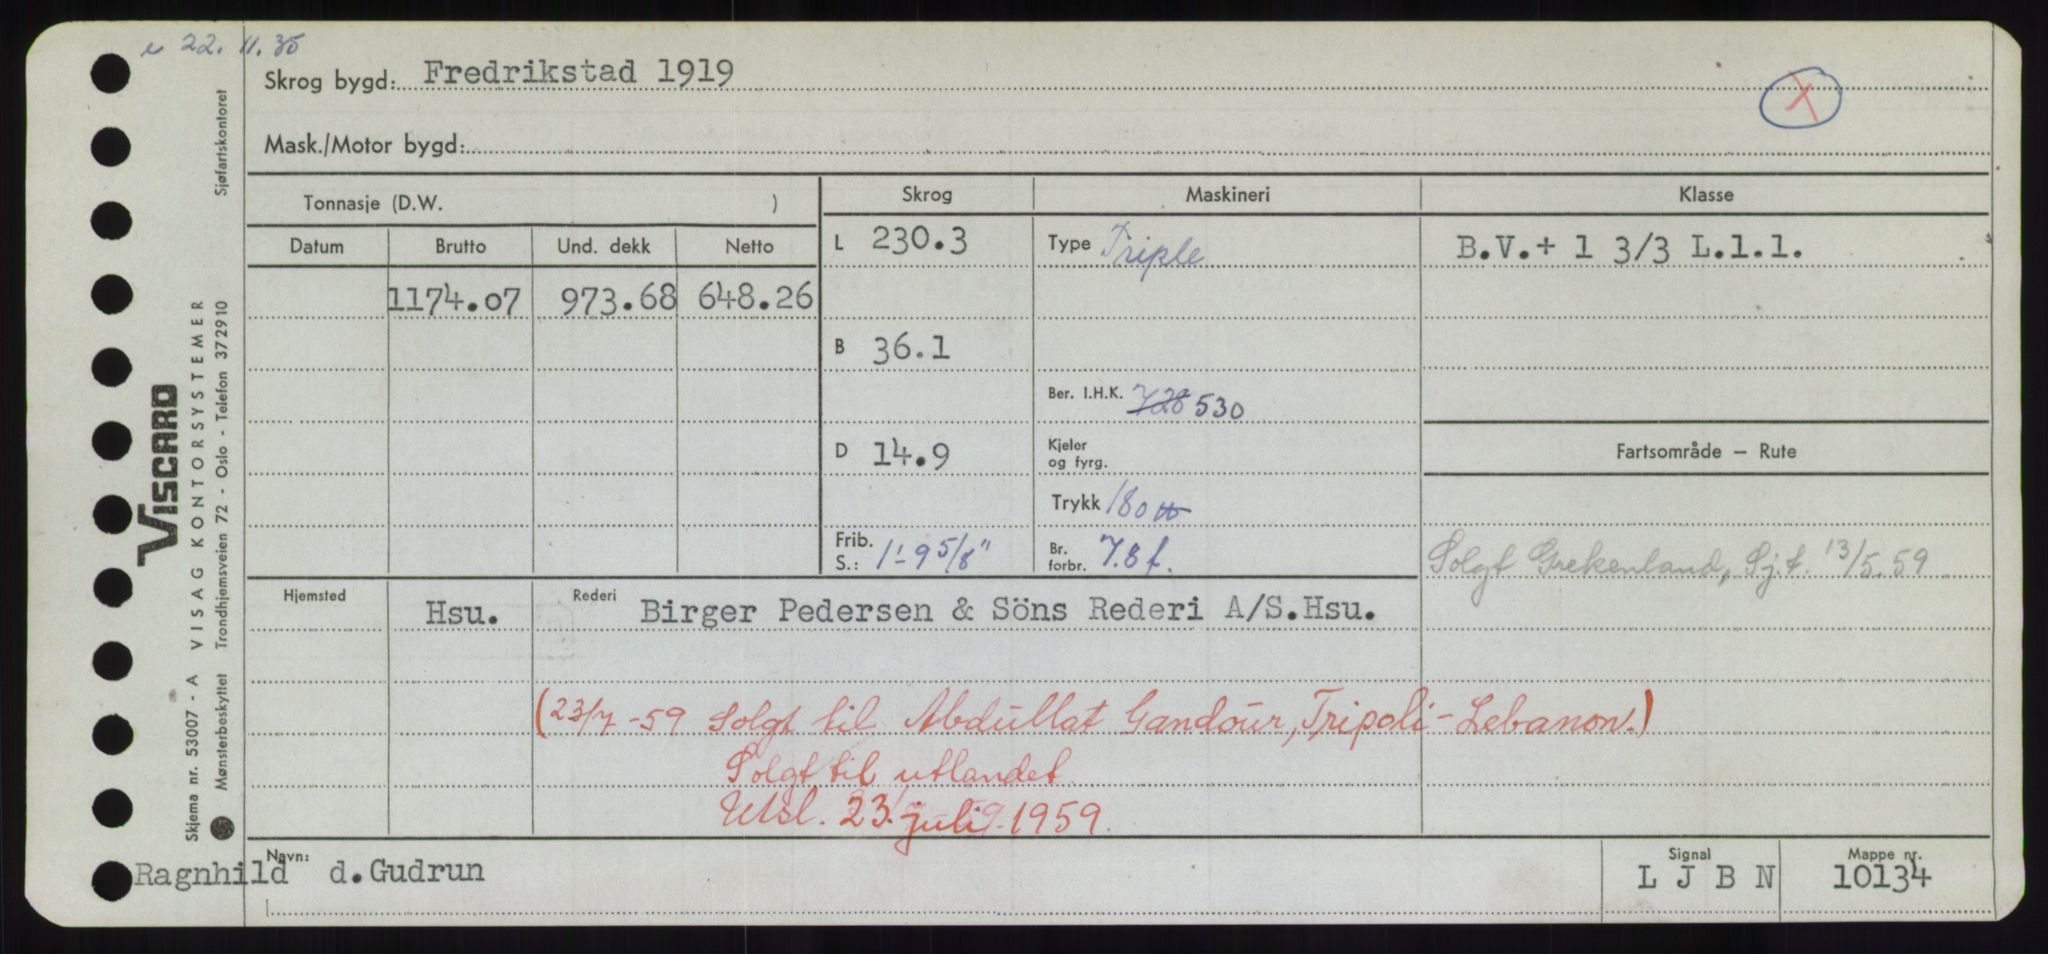 22.11.35
Skrog bygd: Fredrikstad 1919
X
Mask./Motor bygd:
Tonnasje (D.W. )
Skrog
Maskineri
Klasse
Datum Brutto Und. dekk Netto
L 230.3
Type Triple
B.V.+ 1 3/3 L.1.1.
1174.07 973.68 648.26
B 36.1
Ber. I.H.K. 728 530
D 14.9
Kjeler
og fyrg.
Fartsområde – Rute
Trykk 180 lb
Frib.
S.: 1'-9 5/8"
Br.
forbr. 7.8 t.
Solgt Grekenland, Sj.t. 13/5.59
Hjemsted Hsu. Rederi Birger Pedersen & Söns Rederi A/S.Hsu.
(23/7-59 Solgt til Abdullat Gandour, Tripoli-Lebanon.)
Solgt til utlandet.
Utsl. 23. juli 1959.
Navn: Ragnhild d.Gudrun
Signal L J B N
Mappe nr. 10134
Sjøfartskontoret
VISCARD
VISAG KONTORSYSTEMER
Trondhjemsveien 72 - Oslo - Telefon 372910
Skjema nr. 53007 - A
Mønsterbeskyttet